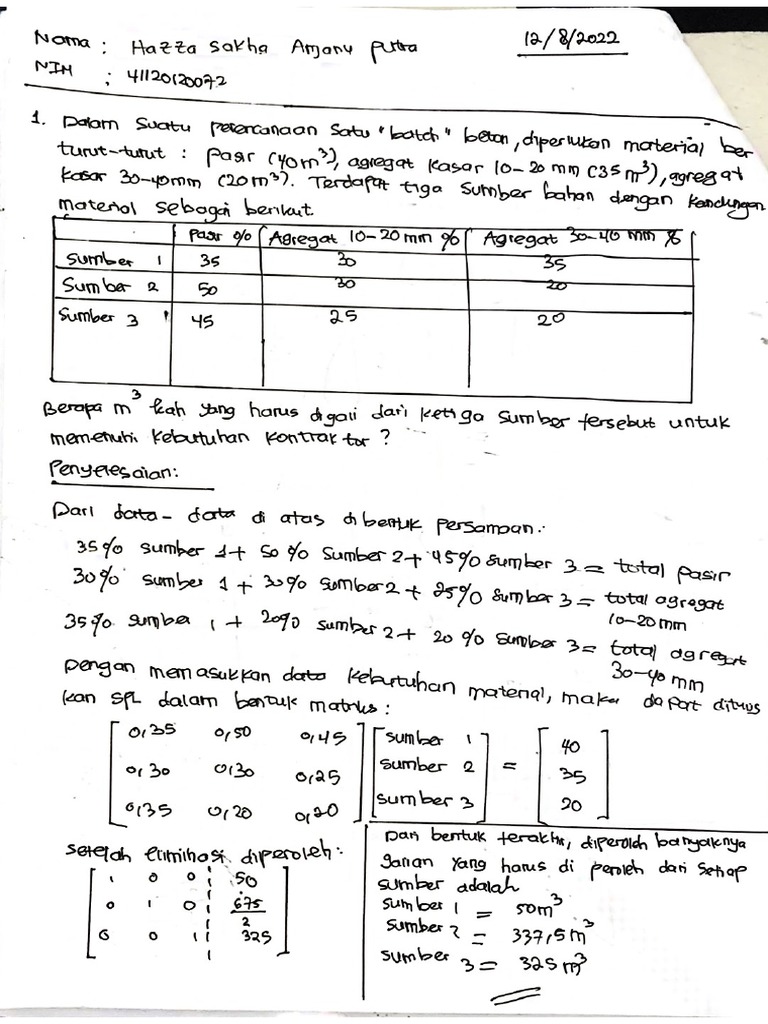 Nama : Hazza Sakha Arjanu Putra 12/8/2022
NIM : 41120120072
1. Dalam Suatu perencanaan Satu "batch" beton, diperlukan material ber
turut-turut : Pasir (40m³), agregat kasar 10-20 mm (35 m³), agregat
kasar 30-40mm (20m³). Terdapat tiga Sumber bahan dengan kandungan
material sebagai berikut
Pasir % Agregat 10-20 mm % Agregat 30-40 mm %
Sumber 1 35 30 35
Sumber 2 50 30 20
Sumber 3 45 25 20
Berapa m³ kah yang harus digali dari ketiga sumber tersebut untuk
memenuhi kebutuhan kontraktor ?
Penyelesaian:
Dari data-data di atas dibentuk persamaan:
35% sumber 1 + 50 % Sumber 2 + 45% sumber 3 = total pasir
30% sumber 1 + 30% sumber 2 + 25% Sumber 3 = total agregat
10-20mm
35% sumber 1 + 20% sumber 2 + 20 % sumber 3 = total agregat
30-40 mm
Dengan memasukkan data kebutuhan material, maka dapat ditulis
kan SPL dalam bentuk matriks :
0,35 0,50 0,45 sumber 1 40
0,30 0,30 0,25 sumber 2 = 35
0,35 0,20 0,20 sumber 3 20
setelah eliminasi diperoleh:
1 0 0 50
0 1 0 675/2
0 0 1 325
Dari bentuk terakhir, diperoleh banyaknya
galian yang harus di peroleh dari setiap
sumber adalah
sumber 1 = 50m³
sumber 2 = 337,5m³
sumber 3 = 325 m³